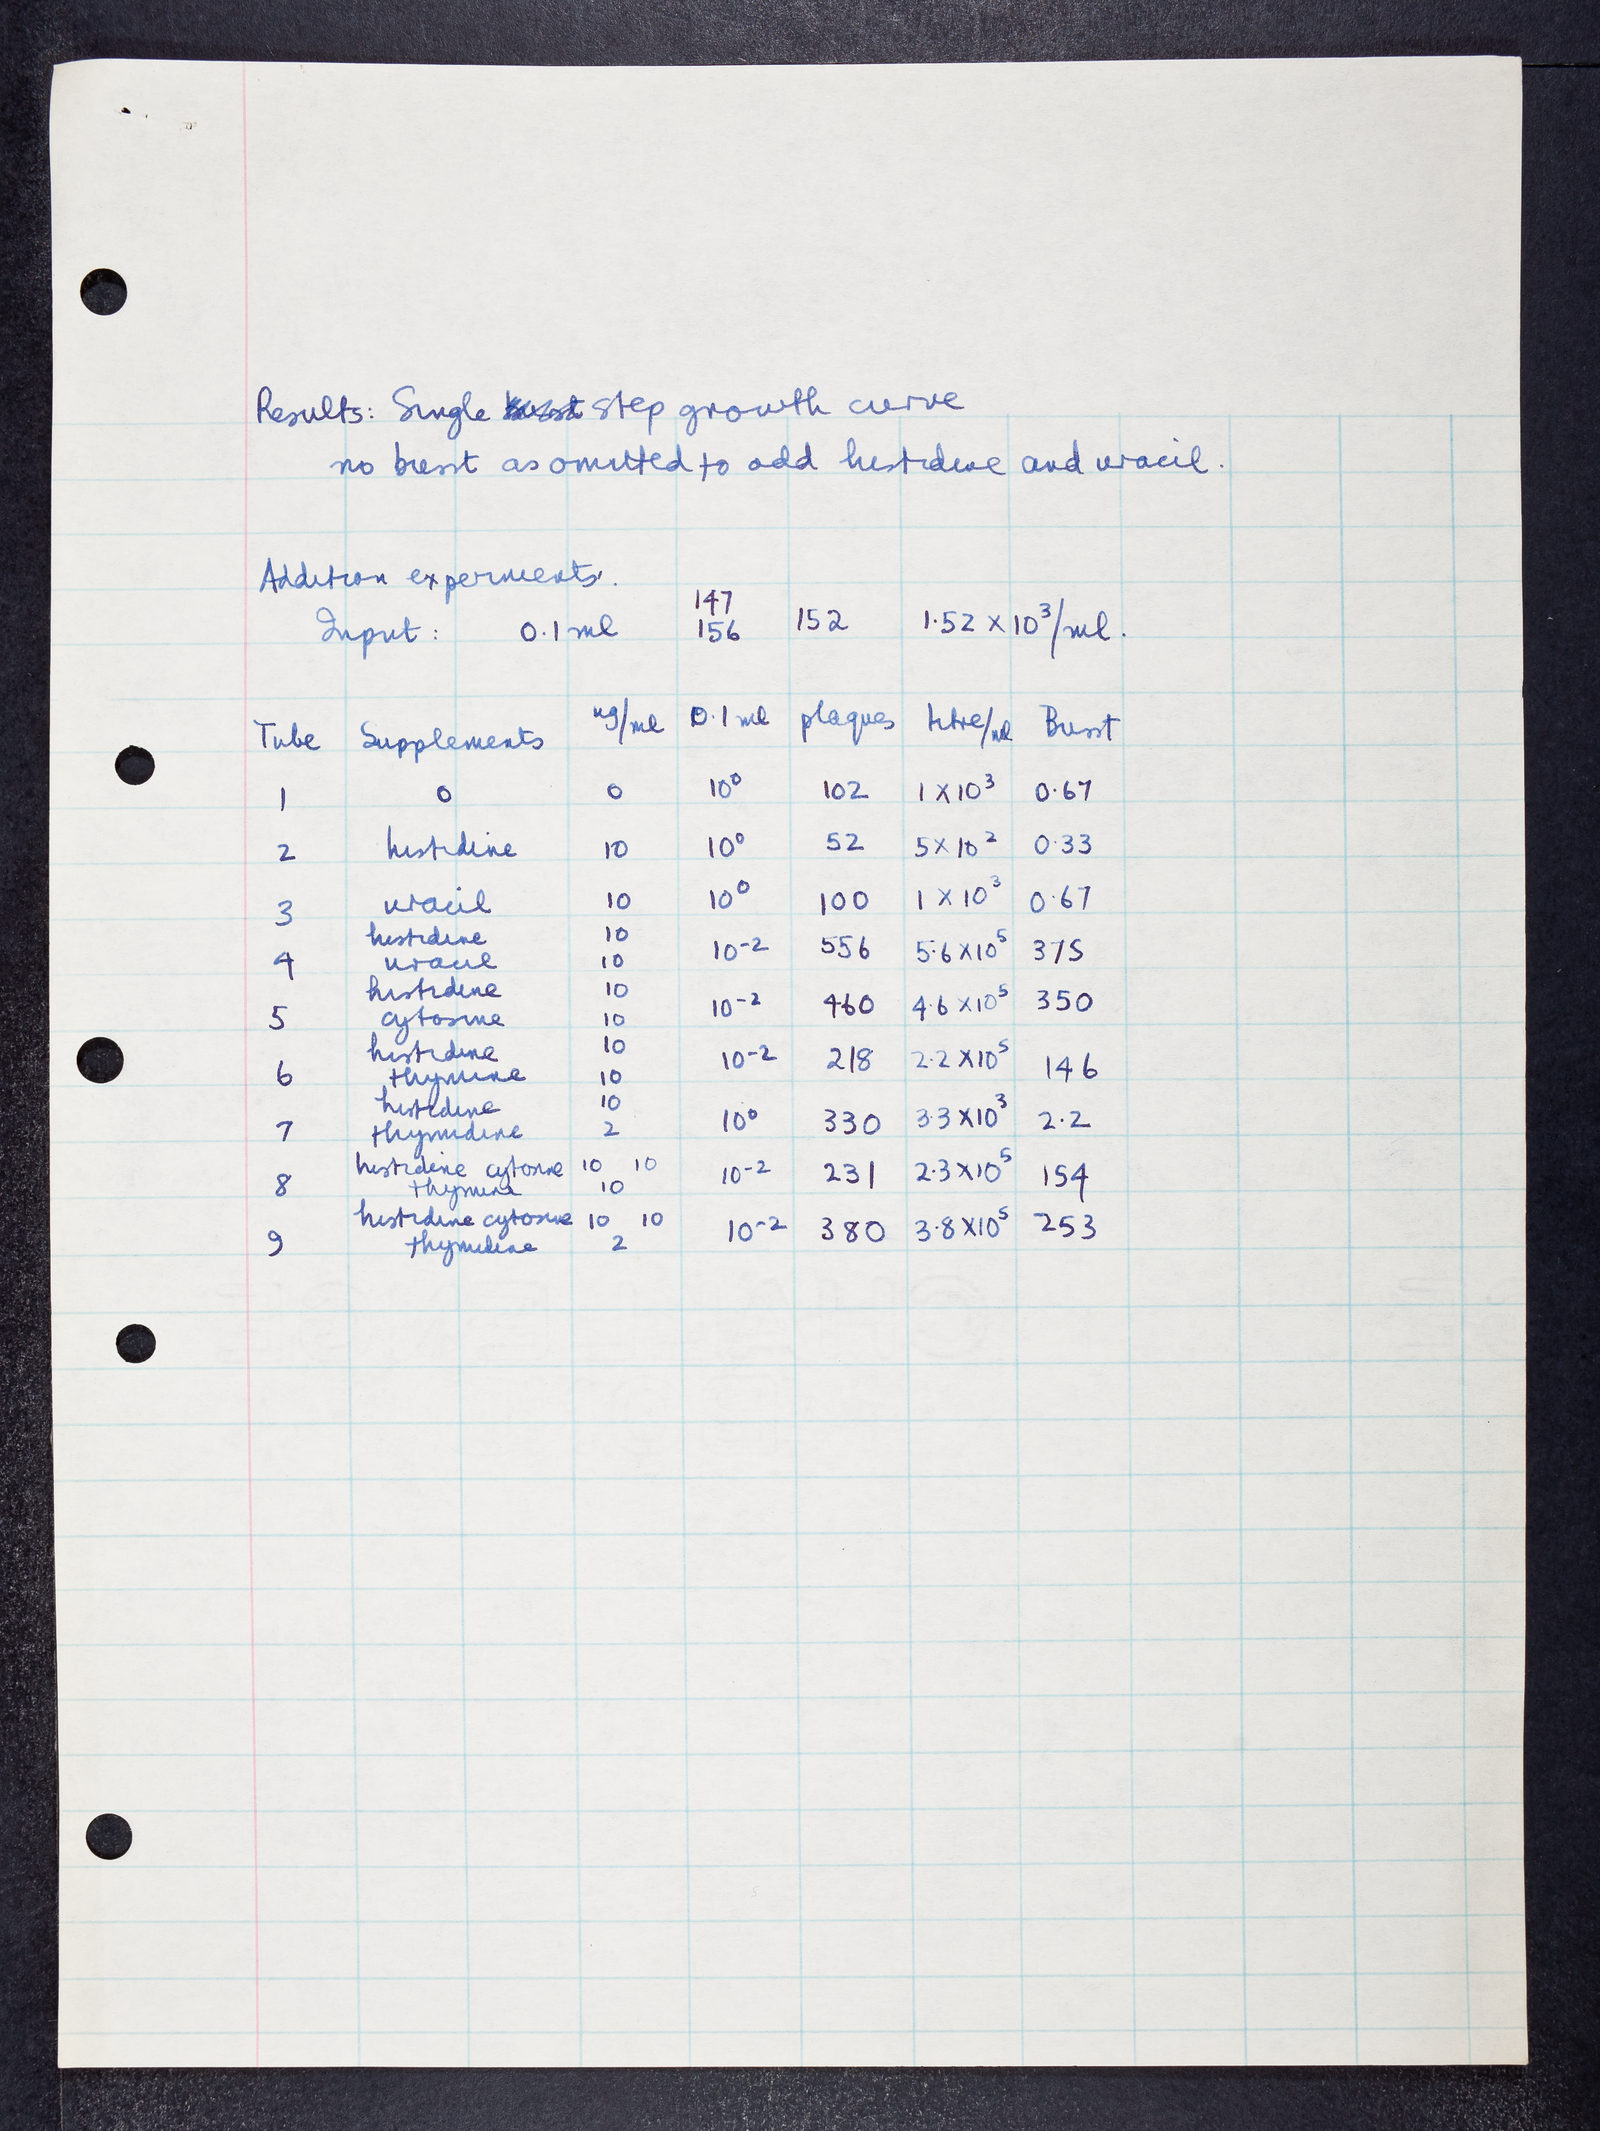 Results: Single step growth curve
no burst as omitted to add histidine and uracil.
Addition experiments.
147
Input: 0.1 ml 156 152 1.52 × 10³/ml.
Tube Supplements ug/ml 0.1 ml plaques titre/ml Burst
1 0 0 10⁰ 102 1 × 10³ 0.67
2 histidine 10 10⁰ 52 5 × 10² 0.33
3 uracil 10 10⁰ 100 1 × 10³ 0.67
histidine 10
4 uracil 10 10⁻² 556 5.6 × 10⁵ 375
histidine 10
5 cytosine 10 10⁻² 460 4.6 × 10⁵ 350
histidine 10
6 thymine 10 10⁻² 218 2.2 × 10⁵ 146
histidine 10
7 thymidine 2 10⁰ 330 3.3 × 10³ 2.2
histidine cytosine 10 10
8 thymine 10 10⁻² 231 2.3 × 10⁵ 154
histidine cytosine 10 10
9 thymidine 2 10⁻² 380 3.8 × 10⁵ 253